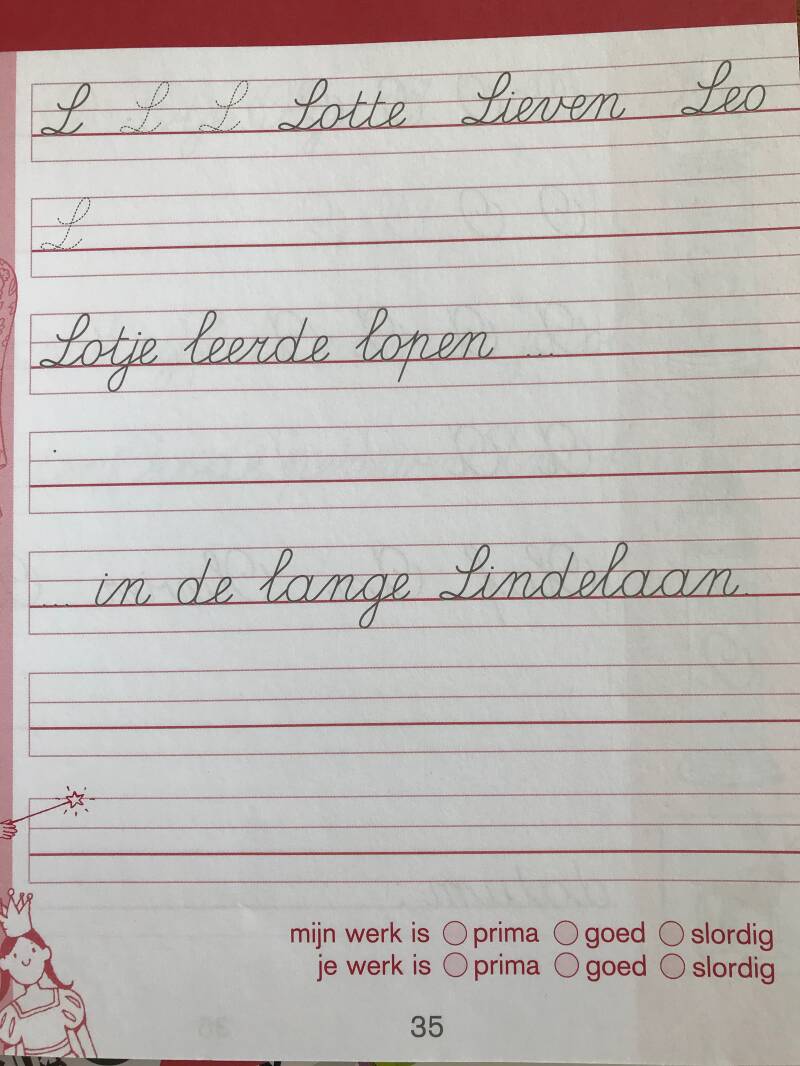 L L L Lotte Lieven Leo
L
Lotje leerde lopen ...
... in de lange Lindelaan.
mijn werk is prima goed slordig
je werk is prima goed slordig
35